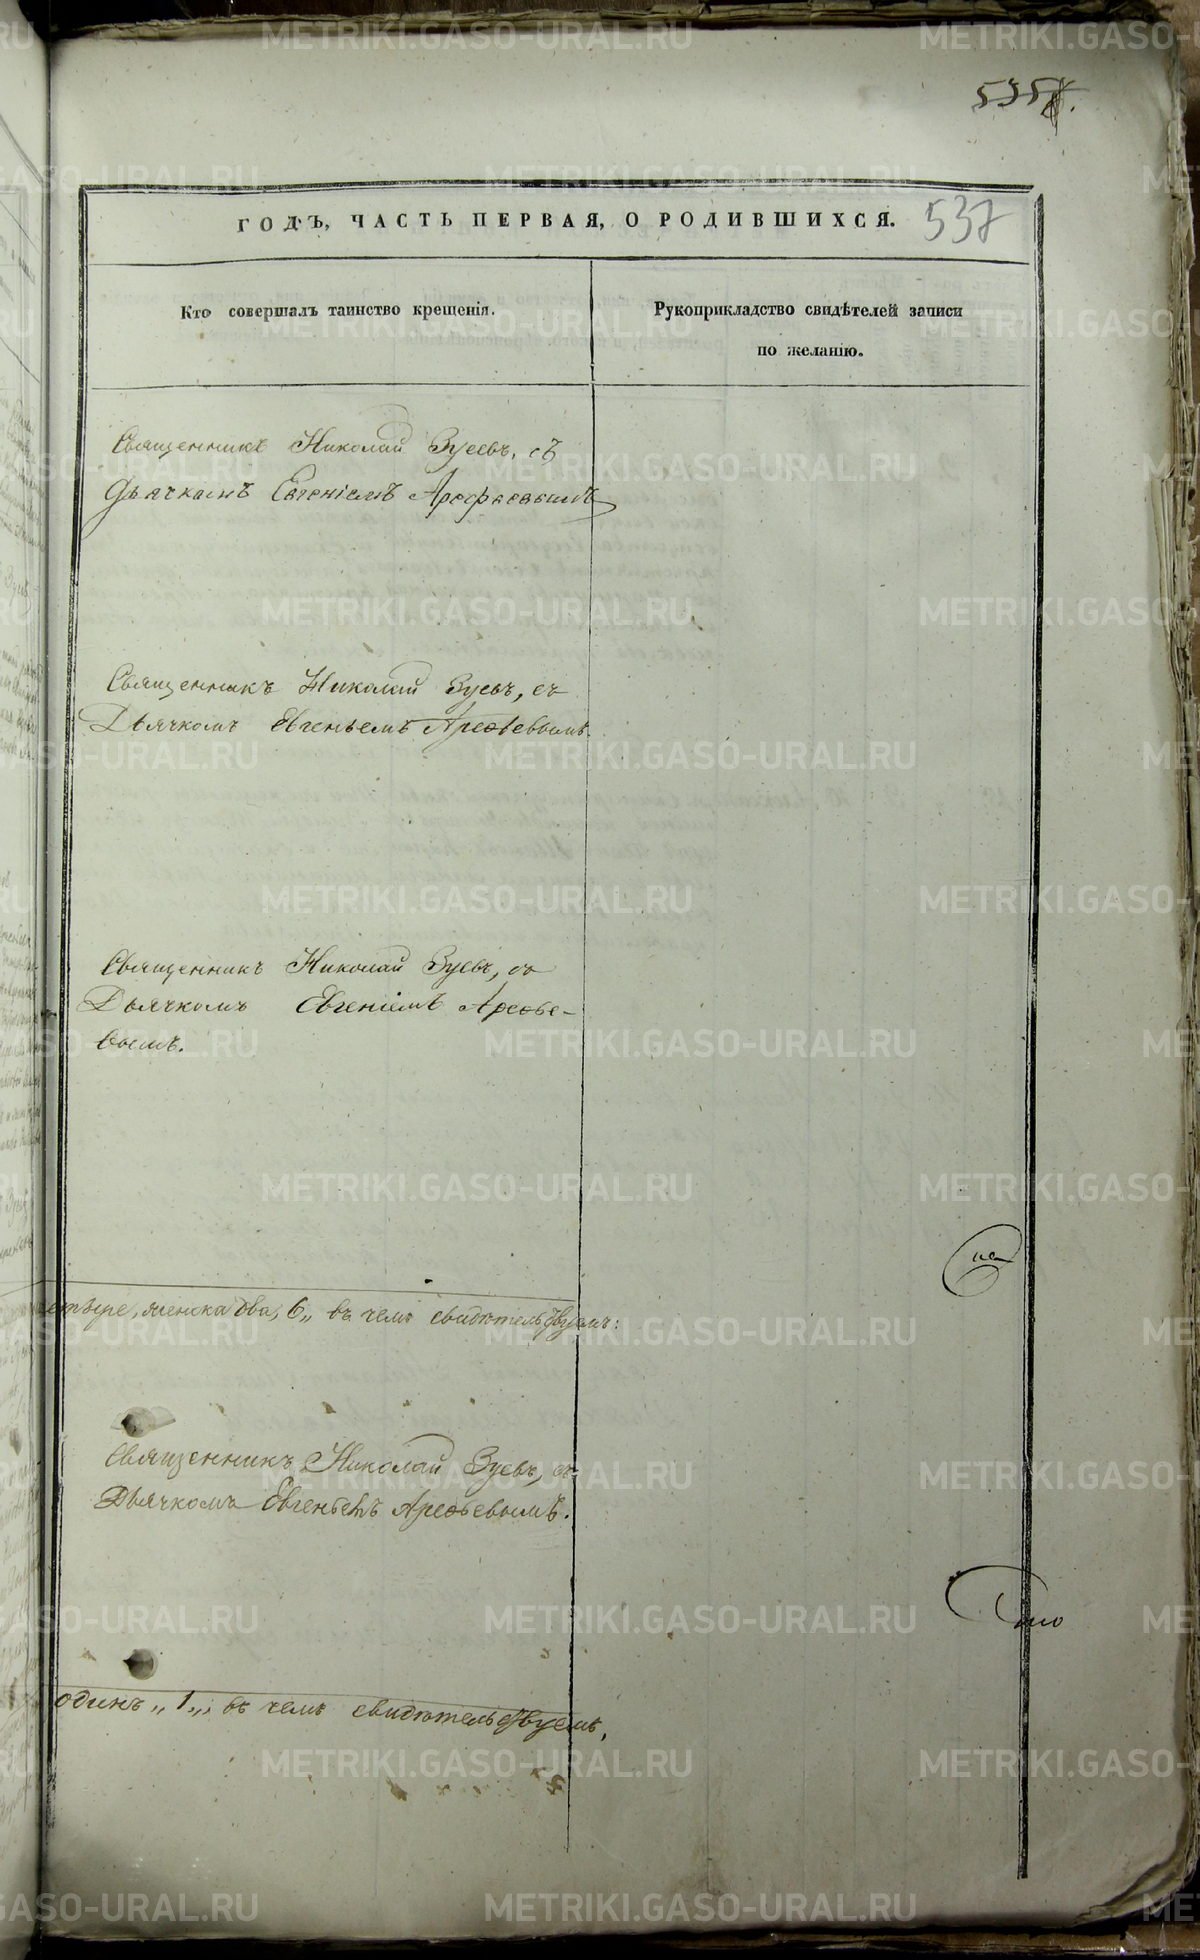 535
ГОДЪ, ЧАСТЬ ПЕРВАЯ, О РОДИВШИХСЯ. 537
Кто совершалъ таинство крещенія.
Рукоприкладство свидѣтелей записи
по желанію.
Священникъ Николай Зуевъ, съ
Дьячкомъ Евгеніемъ Арефьевымъ
Священникъ Николай Зуевъ, съ
Дьячкомъ Евгеньемъ Арефьевымъ.
Священникъ Николай Зуевъ, со
Дьячкомъ Евгеніемъ Арефье-
вымъ.
женска два, 6„ въ чемъ свидѣтельствуемъ:
Священникъ Николай Зуевъ, съ
Дьячкомъ Евгеньемъ Арефьевымъ.
одинъ „1„, въ чемъ свидѣтельствуемъ,
METRIKI.GASO-URAL.RU